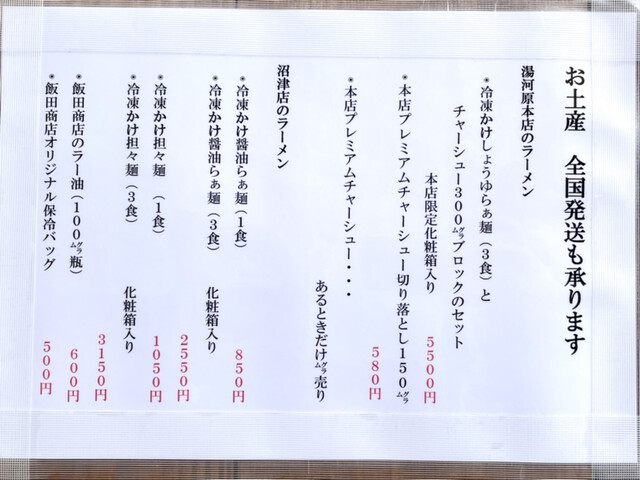 お土産　全国発送も承ります
湯河原本店のラーメン
＊冷凍かけしょうゆらぁ麺（３食）と
チャーシュー３００㌘ブロックのセット
本店限定化粧箱入り　５５００円
＊本店プレミアムチャーシュー切り落とし１５０㌘
５８０円
＊本店プレミアムチャーシュー・・・
あるときだけ㌘売り
沼津店のラーメン
＊冷凍かけ醬油らぁ麺（１食）　８５０円
＊冷凍かけ醬油らぁ麺（３食）　化粧箱入り
２５５０円
＊冷凍かけ担々麺　（１食）　１０５０円
＊冷凍かけ担々麺（３食）　化粧箱入り
３１５０円
＊飯田商店のラー油（１００㌘瓶）　６００円
＊飯田商店オリジナル保冷バッグ　５００円